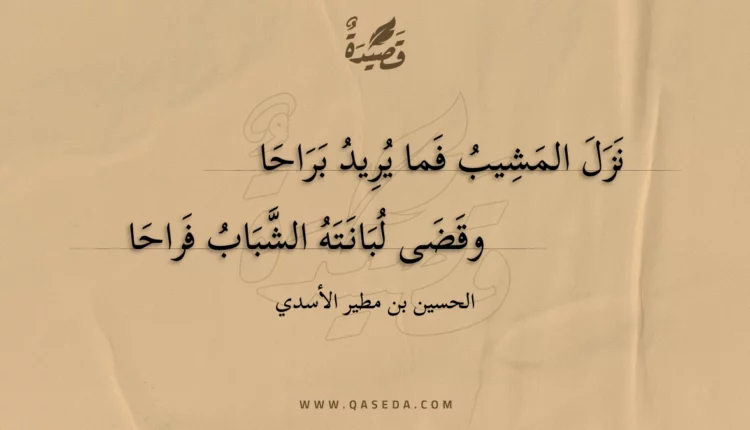 قَصِيدَةٌ
نَزَلَ المَشِيبُ فَما يُرِيدُ بَرَاحَا
وقَضَى لُبَانَتَهُ الشَّبَابُ فَراحَا
الحسين بن مطير الأسدي
WWW.QASEDA.COM